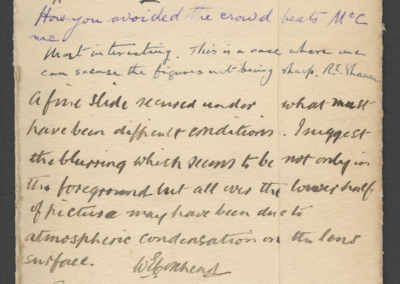 How you avoided the crowd beats McC
me
Most interesting. This is a case where one
can excuse the figures not being sharp. R.E. Shawn
A fine slide secured under what must
have been difficult conditions. I suggest
the blurring which seems to be not only in
the foreground but all over the lower half
of picture may have been due to
atmospheric condensation on the lens
surface.